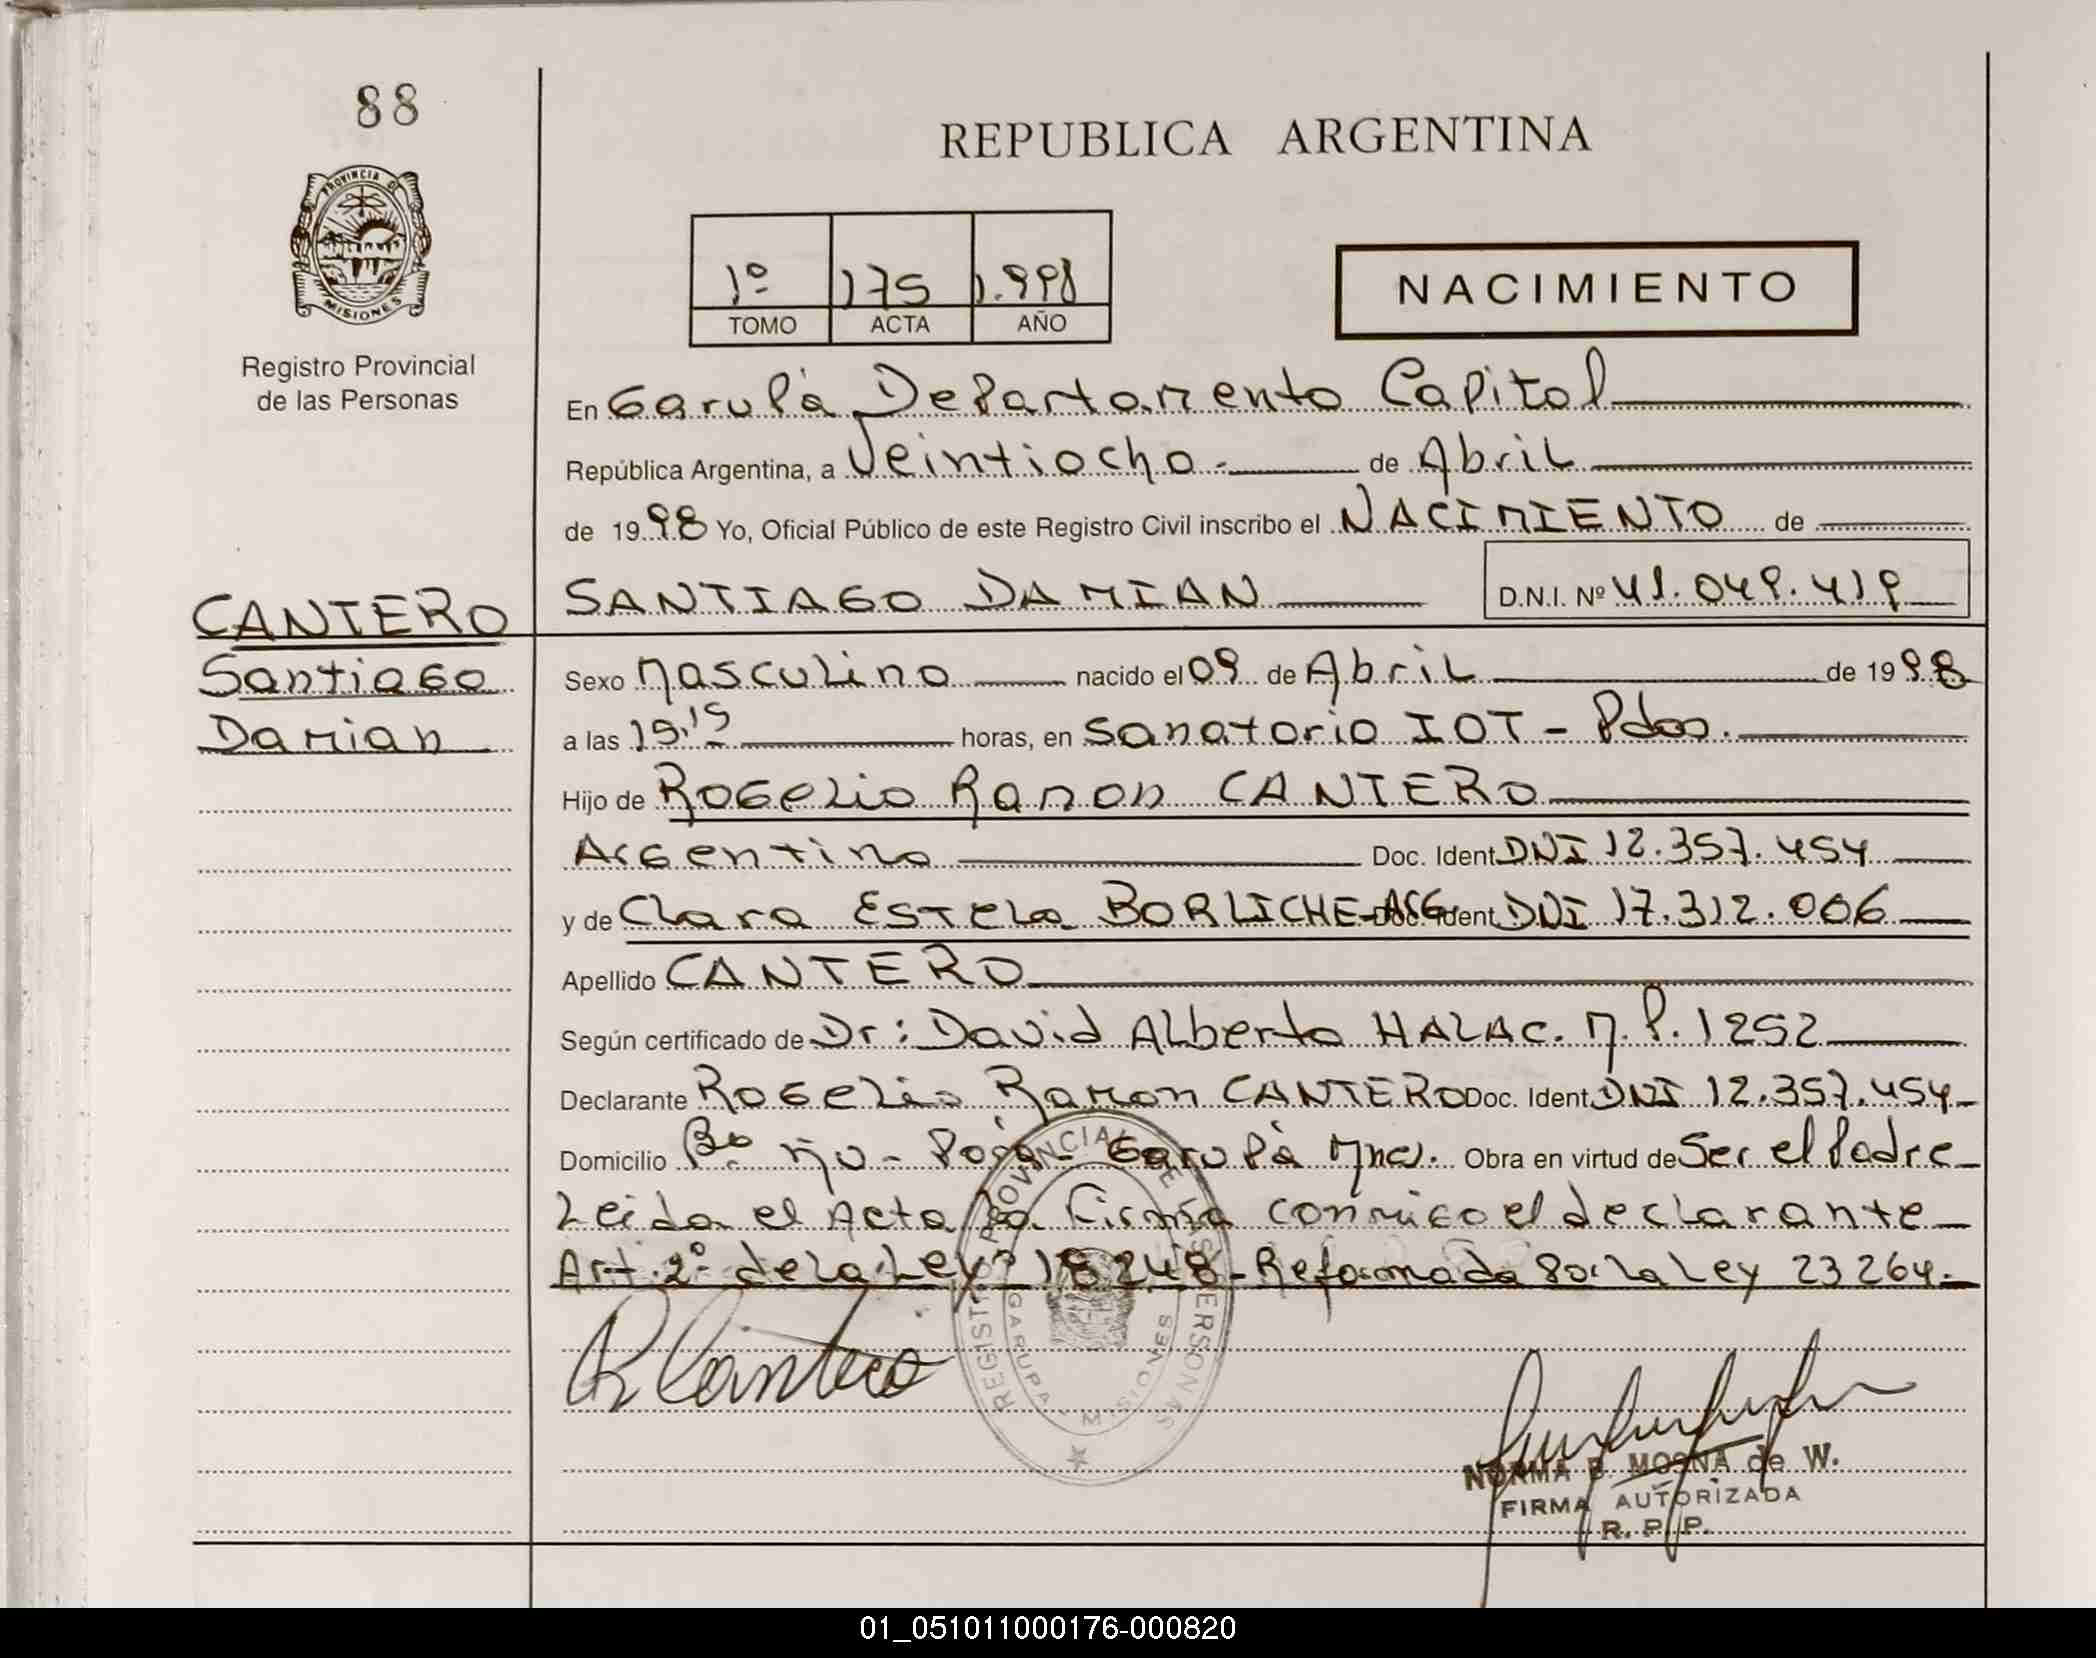 88
REPUBLICA ARGENTINA
PROVINCIA DE MISIONES
Registro Provincial
de las Personas
1º 175 1.998
TOMO ACTA AÑO
NACIMIENTO
En Garupá Departamento Capital
República Argentina, a Veintiocho.- de Abril
de 1998 Yo, Oficial Público de este Registro Civil inscribo el NACIMIENTO de
SANTIAGO DAMIAN D.N.I. Nº 41.049.419
CANTERO
Santiago
Damian
Sexo Masculino nacido el 09 de Abril de 1998
a las 19,15 horas, en Sanatorio IOT - Pdas.
Hijo de Rogelio Ramon CANTERO
Argentino Doc. Ident. DNI 12.357.454
y de Clara Estela BORLICHE-ARG Doc. Ident. DNI 17.312.006
Apellido CANTERO
Según certificado de Dr: David Alberto HALAC. M.P. 1252
Declarante Rogelio Ramon CANTERO Doc. Ident. DNI 12.357.454-
Domicilio Bº Garupá Mnes. Obra en virtud de Ser el Padre-
Leida el Acta la Firma conmigo el declarante-
Art. 2º de la Ley 18248-Reformada Por la Ley 23264.-
R Cantero
REGISTRO PROVINCIAL DE LAS PERSONAS
GARUPA - MISIONES
NORMA B. MOSNA de W.
FIRMA AUTORIZADA
R. P. P.
01_051011000176-000820